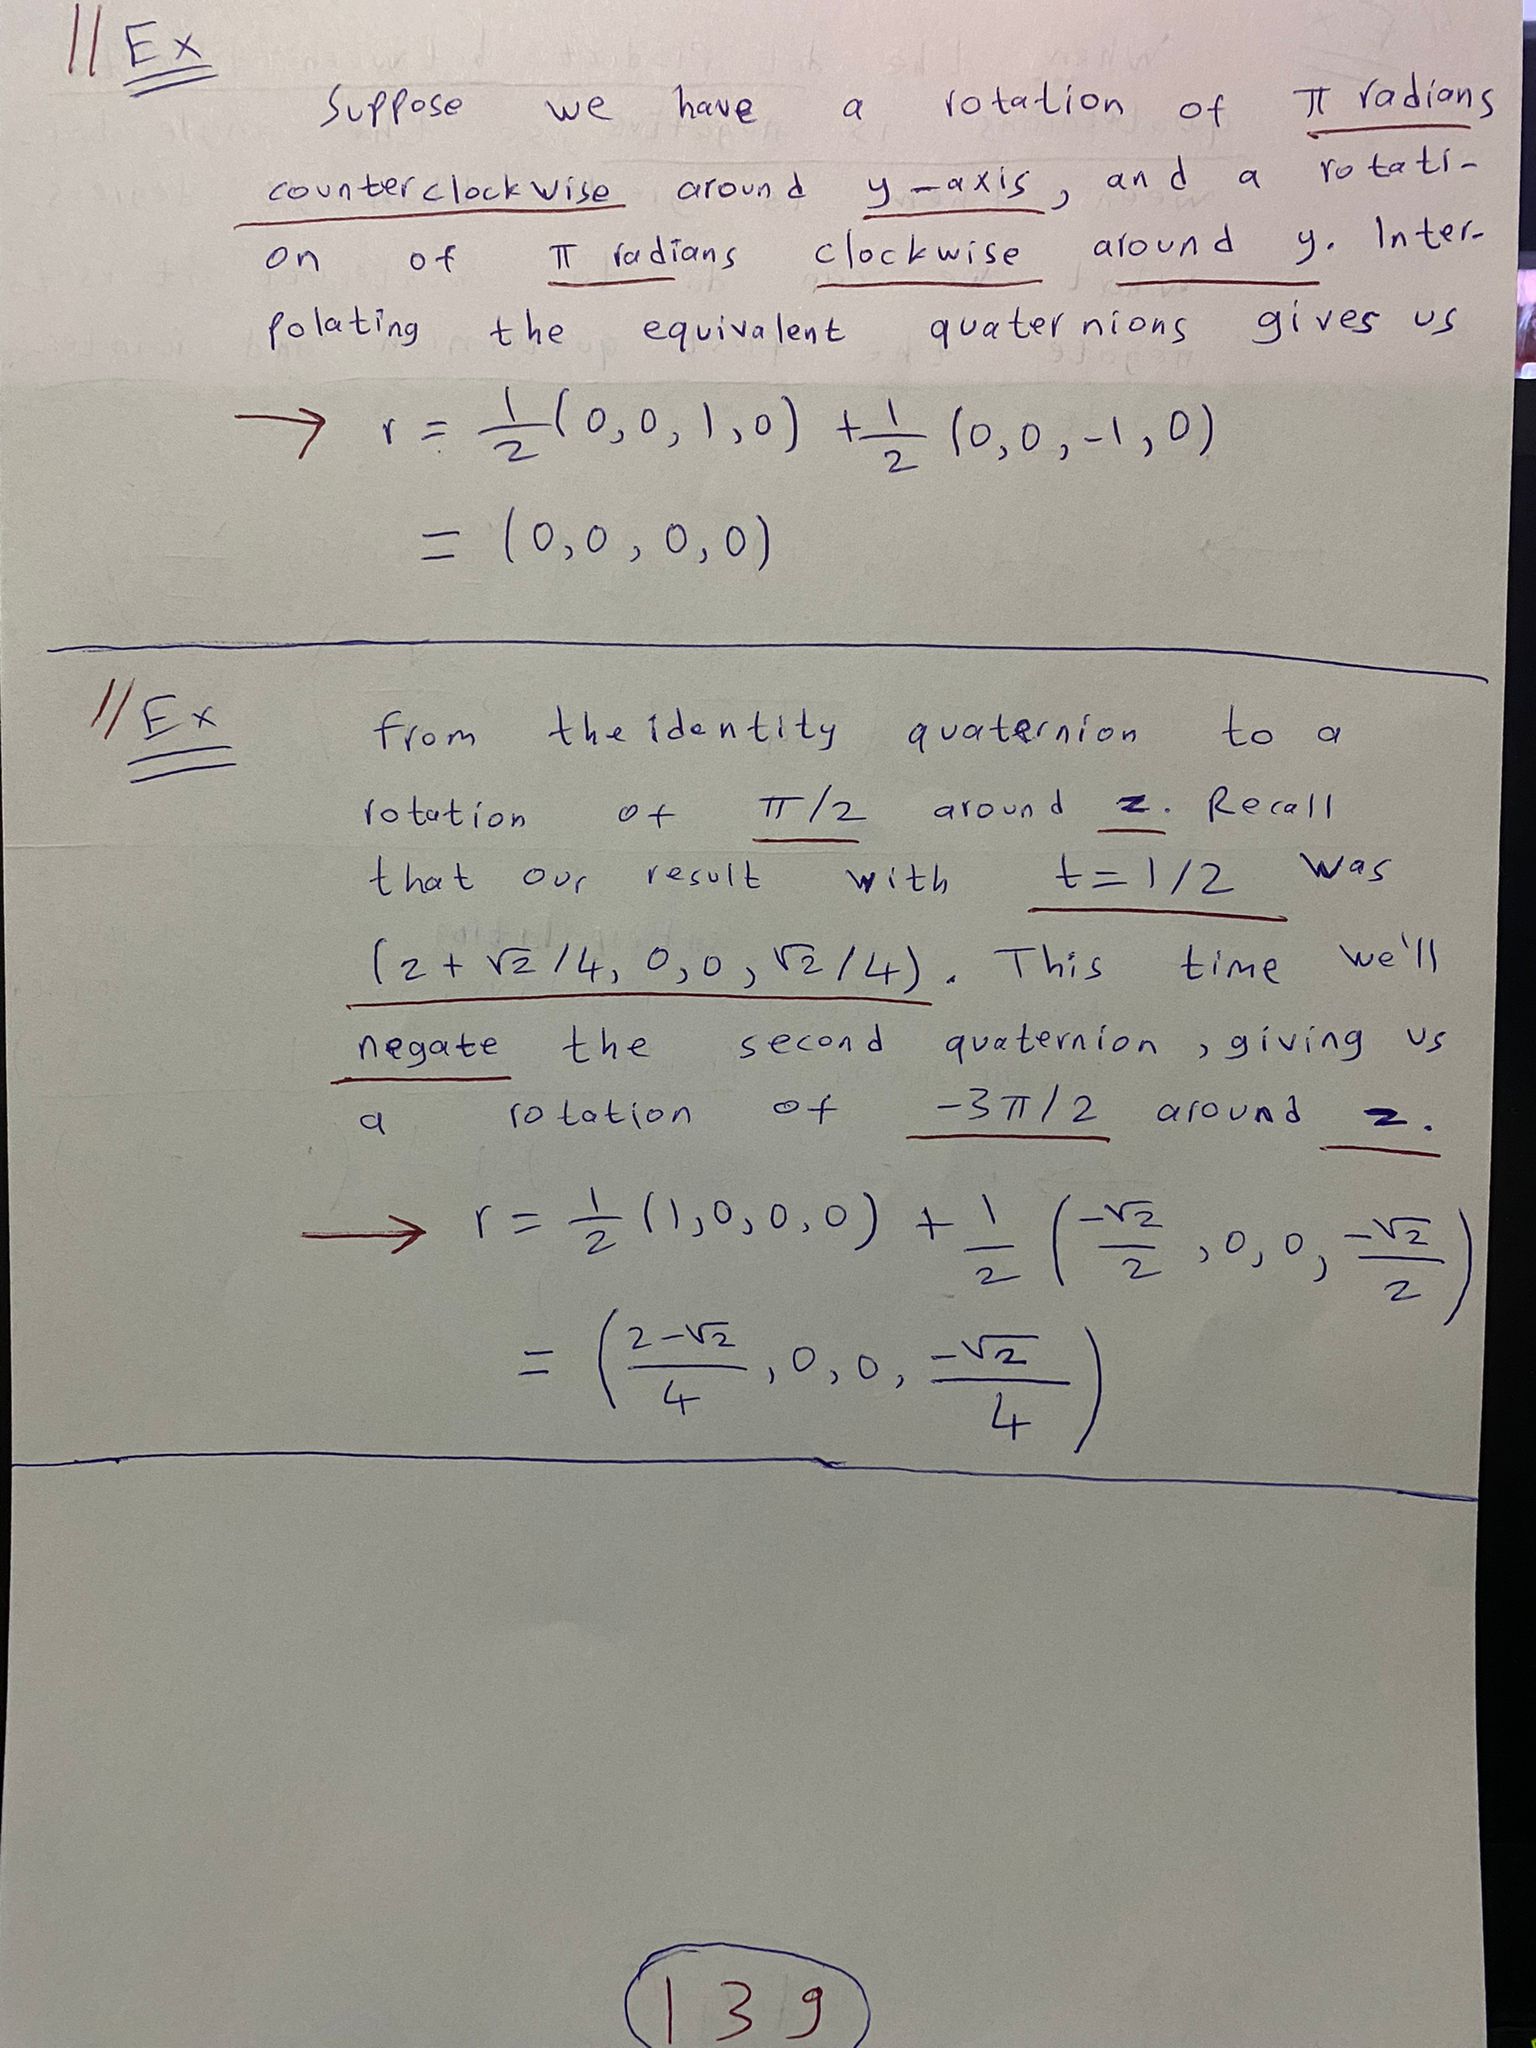 // Ex
Suppose we have a rotation of π radians
counterclockwise around y-axis, and a rotati-
on of π radians clockwise around y. Inter-
polating the equivalent quaternions gives us
→ r = 1/2 (0,0,1,0) + 1/2 (0,0,-1,0)
= (0,0,0,0)
// Ex from the identity quaternion to a
rotation of π/2 around z. Recall
that our result with t=1/2 was
(2+√2/4, 0,0, √2/4). This time we'll
negate the second quaternion, giving us
a rotation of -3π/2 around z.
→ r = 1/2 (1,0,0,0) + 1/2 (-√2/2, 0,0, -√2/2)
= (2-√2/4, 0,0, -√2/4)
139